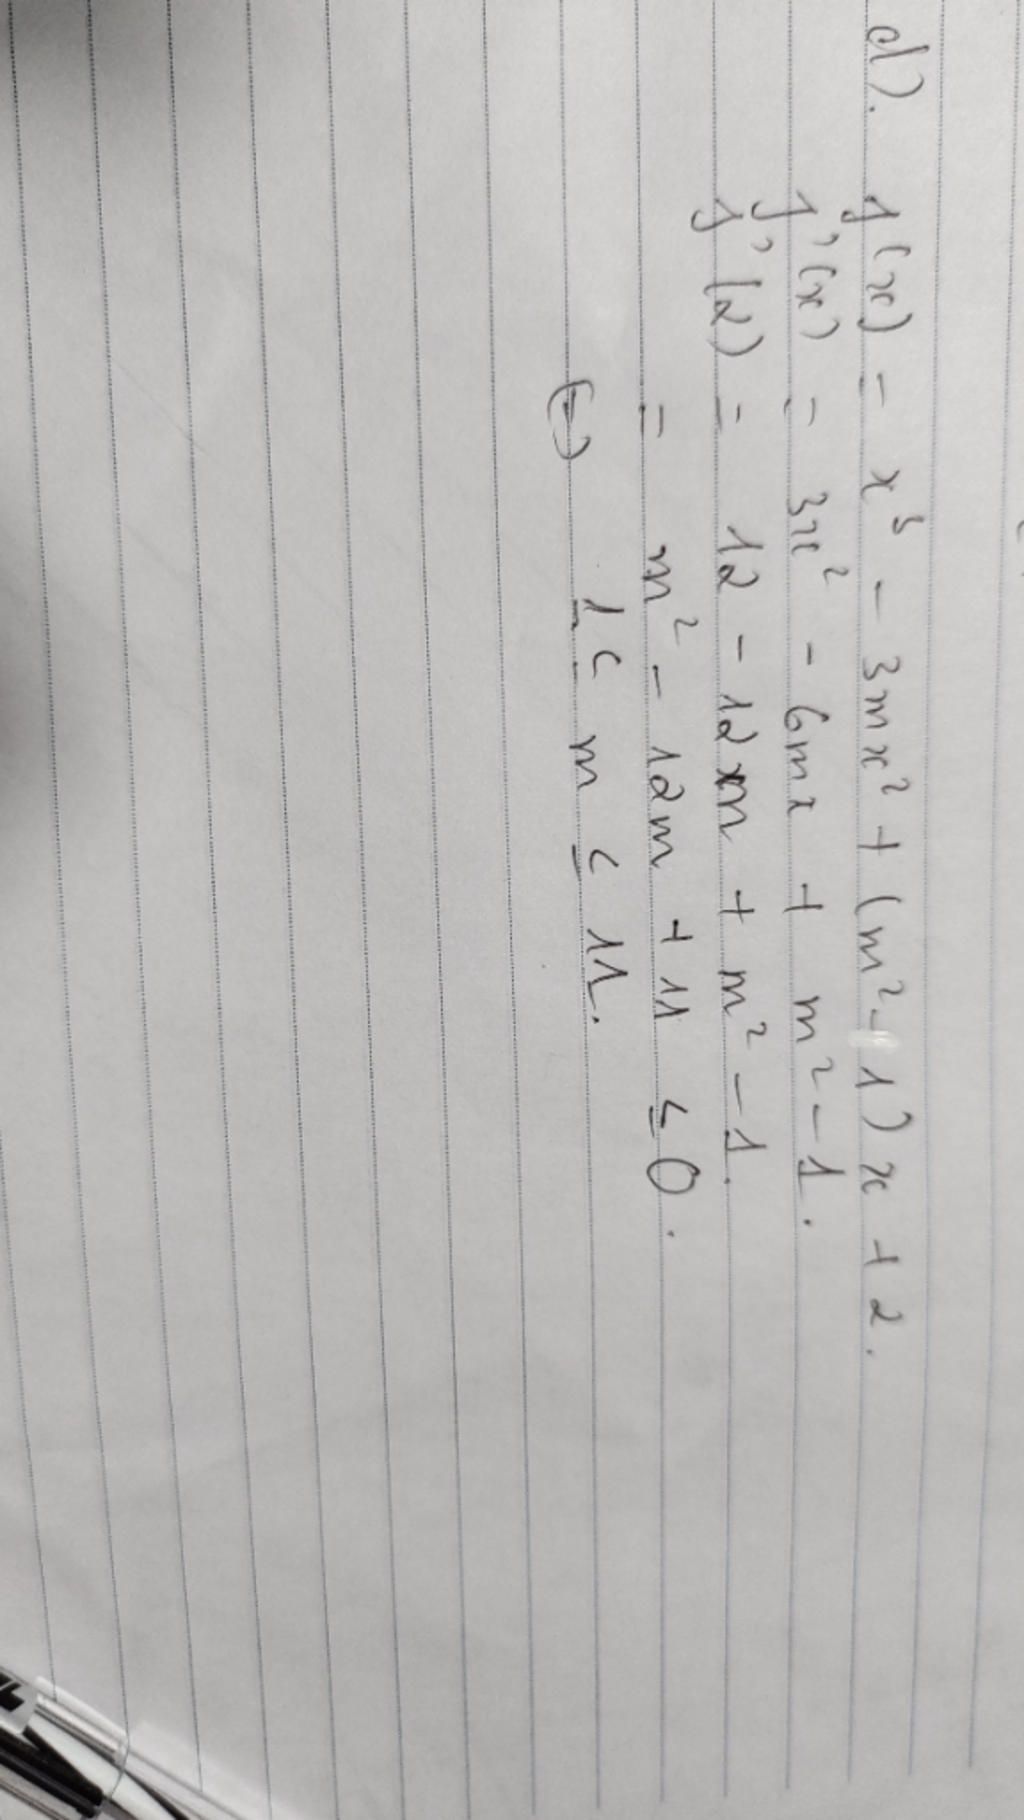 d). f(x) = x³ - 3mx² + (m² - 1)x + 2.
f'(x) = 3x² - 6mx + m² - 1.
f'(2) = 12 - 12m + m² - 1.
= m² - 12m + 11 ≤ 0.
(-) 1 ≤ m ≤ 11.